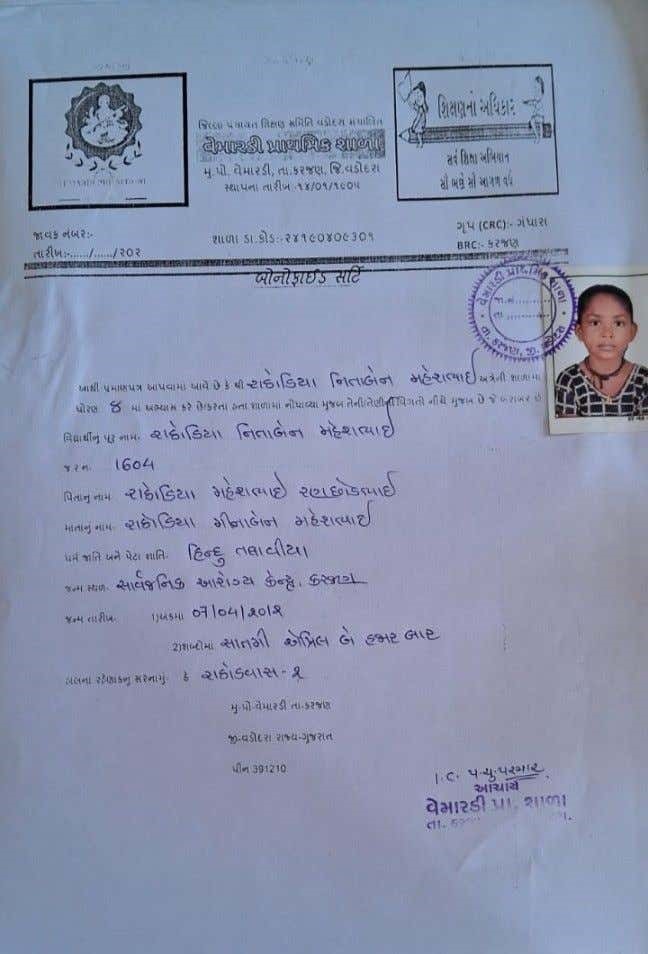 જિલ્લા પંચાયત શિક્ષણ સમિતિ વડોદરા સંચાલિત
વેમારડી પ્રાથમિક શાળા
મુ.પો. વેમારડી, તા.કરજણ, જિ.વડોદરા
સ્થાપના તારીખ -૧૪/૦૧/૧૯૦૫
શિક્ષણનો અધિકાર
સર્વ શિક્ષા અભિયાન
સૌ ભણે સૌ આગળ વધે
જાવક નંબર:-
તારીખ:-....../....../૨૦૨
શાળા ડા.કોડ:-૨૪૧૯૦૪૦૯૩૦૧
ગૃપ (CRC):- ગંધારા
BRC:- કરજણ
બોનોફાઈડ સર્ટિ
વેમારડી પ્રાથમિક શાળા
જા.નં.
તા.
તા. કરજણ, જી. વડોદરા
આથી પ્રમાણપત્ર આપવામાં આવે છે કે શ્રી રાઠોડિયા નિતાબેન મહેશભાઈ અત્રેની શાળામાં
ધોરણ 8 માં અભ્યાસ કરે છે/કરતા હતા શાળામાં નોંધાવ્યા મુજબ તેની/તેણીની વિગતી નીચે મુજબ છે જે બરાબર છે
વિદ્યાર્થીનું પૂરૂ નામ:- રાઠોડિયા નિતાબેન મહેશભાઈ
જ.ર.નં. 1604
પિતાનું નામ:- રાઠોડિયા મહેશભાઈ રણછોડભાઈ
માતાનું નામ:- રાઠોડિયા મીનાબેન મહેશભાઈ
ધર્મ જાતિ અને પેટા જ્ઞાતિ:- હિન્દુ તળાવીયા
જન્મ સ્થળ:- સાર્વજનિક આરોગ્ય કેન્દ્ર, કરજણ
જન્મ તારીખ:- ૧)અંકમાં 07/04/૨૦૧૨
૨)શબ્દોમાં સાતમી એપ્રિલ બે હજાર બાર
હાલના રહેણાકનું સરનામું:- ઠે રાઠોડવાસ-૨
મુ-પો-વેમારડી તા-કરજણ
જી-વડોદરા રાજ્ય-ગુજરાત
પીન 391210
I.C. પ.યુ.પરમાર
આચાર્ય
વેમારડી પ્રા. શાળા